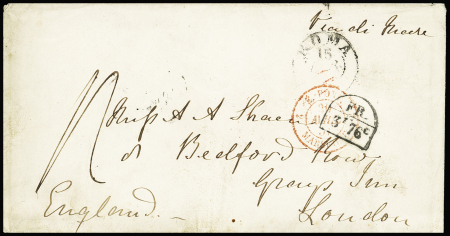 Via di Mare
ROMA
15
FR.
1F 76c
Miss A A Shaen
8 Bedford Row
Grays Inn
London
England